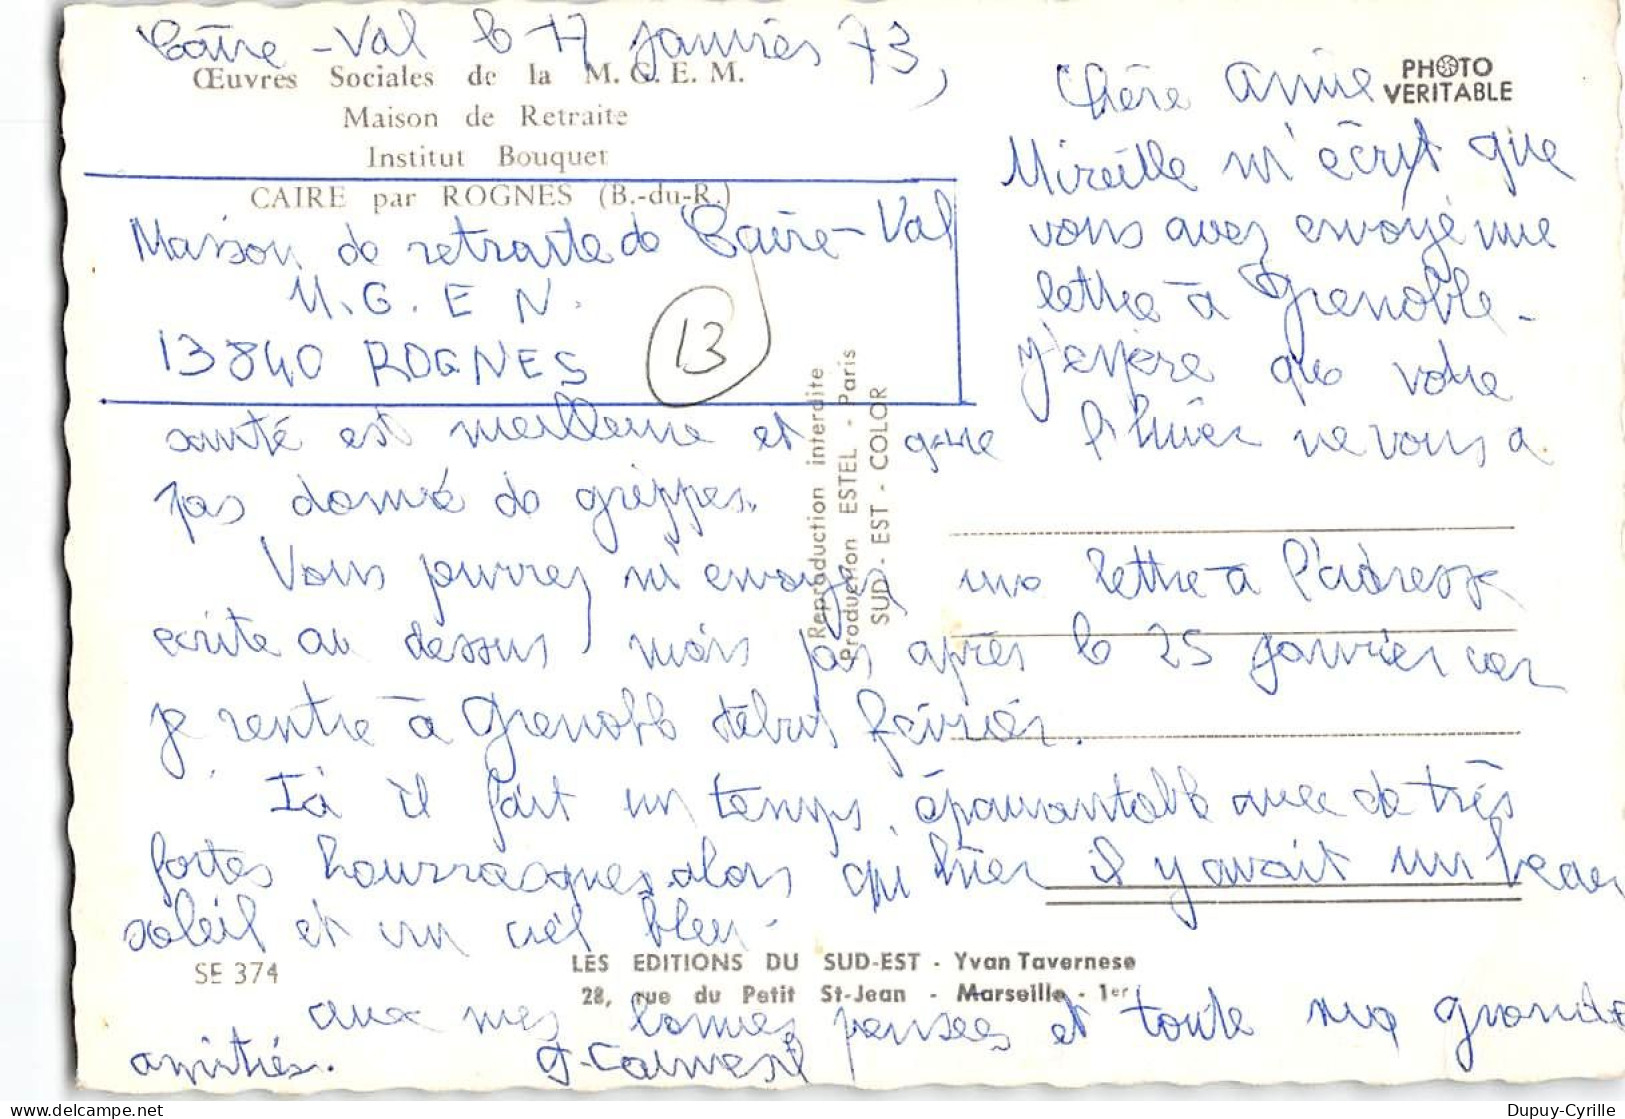 Caire-Val le 17 janvier 73,
Œuvres Sociales de la M. G. E. M.
Maison de Retraite
Institut Bouquet
CAIRE par ROGNES (B.-du-R.)
Maison de retraite de Caire-Val
M.G.E.N.
13840 ROGNES
13
PHOTO
VERITABLE
Chère Annie
Mireille m'écrit que
vous avez envoyé une
lettre à Grenoble -
J'espère que votre
santé est meilleure et que l'hiver ne vous a
pas donné de grippes.
Vous pourrez m'envoyer une lettre à l'adresse
écrite au dessus, mais pas après le 25 janvier car
je rentre à Grenoble début février.
Ici il fait un temps épouvantable avec de très
fortes bourrasques alors qu'hier il y avait un beau
soleil et un ciel bleu -
avec mes bonnes pensées et toute ma grande
amitiés.
Reproduction interdite
Production ESTEL - Paris
SUD - EST - COLOR
SE 374
LES EDITIONS DU SUD-EST - Yvan Tavernese
28, rue du Petit St-Jean - Marseille - 1er
Dupuy-Cyrille